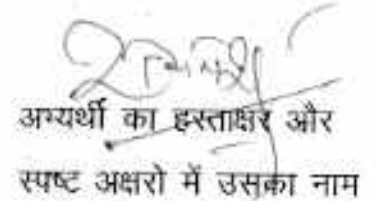 अभ्यर्थी का हस्ताक्षर और
स्पष्ट अक्षरो में उसका नाम